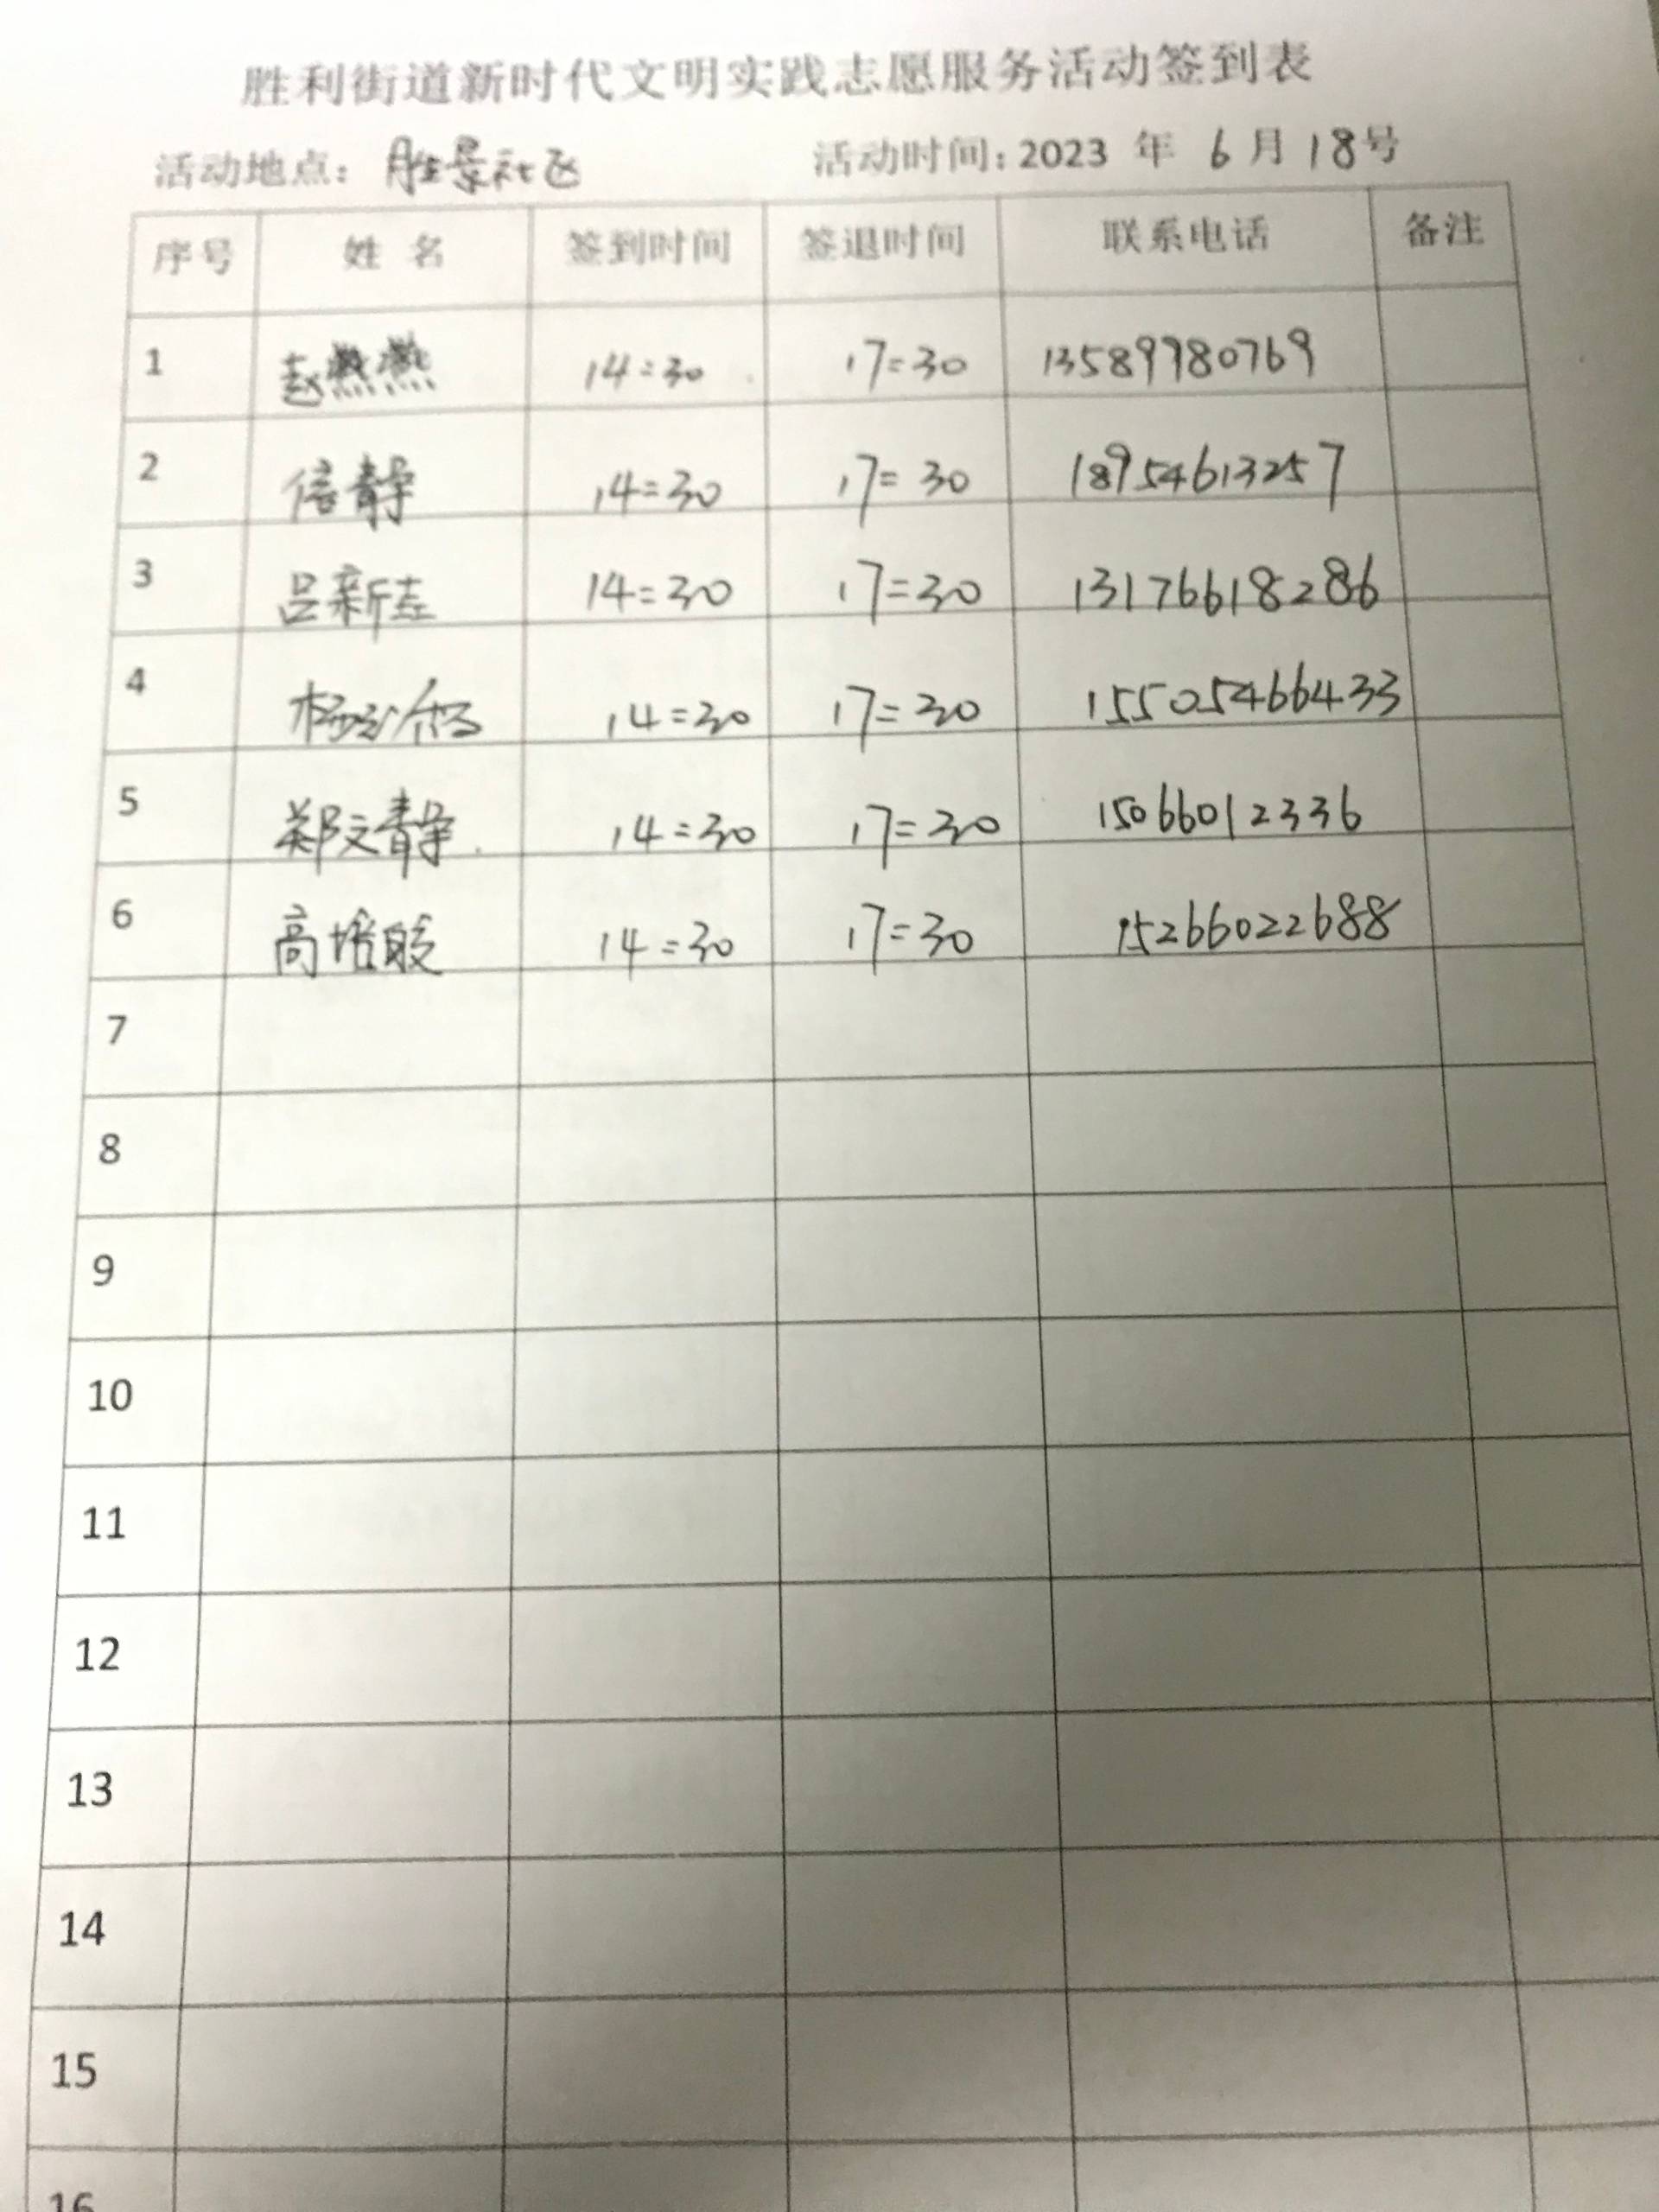 胜利街道新时代文明实践志愿服务活动签到表
活动地点：胜景社区 活动时间：2023 年 6 月 18号
序号 姓 名 签到时间 签退时间 联系电话 备注
1 赵燕燕 14:30 17:30 13589980769
2 信静 14:30 17:30 18954613257
3 吕新圭 14:30 17:30 13176618286
4 14:30 17:30 15505466433
5 郑文静 14:30 17:30 15066012336
6 高培 14:30 17:30 15266022688
7
8
9
10
11
12
13
14
15
16